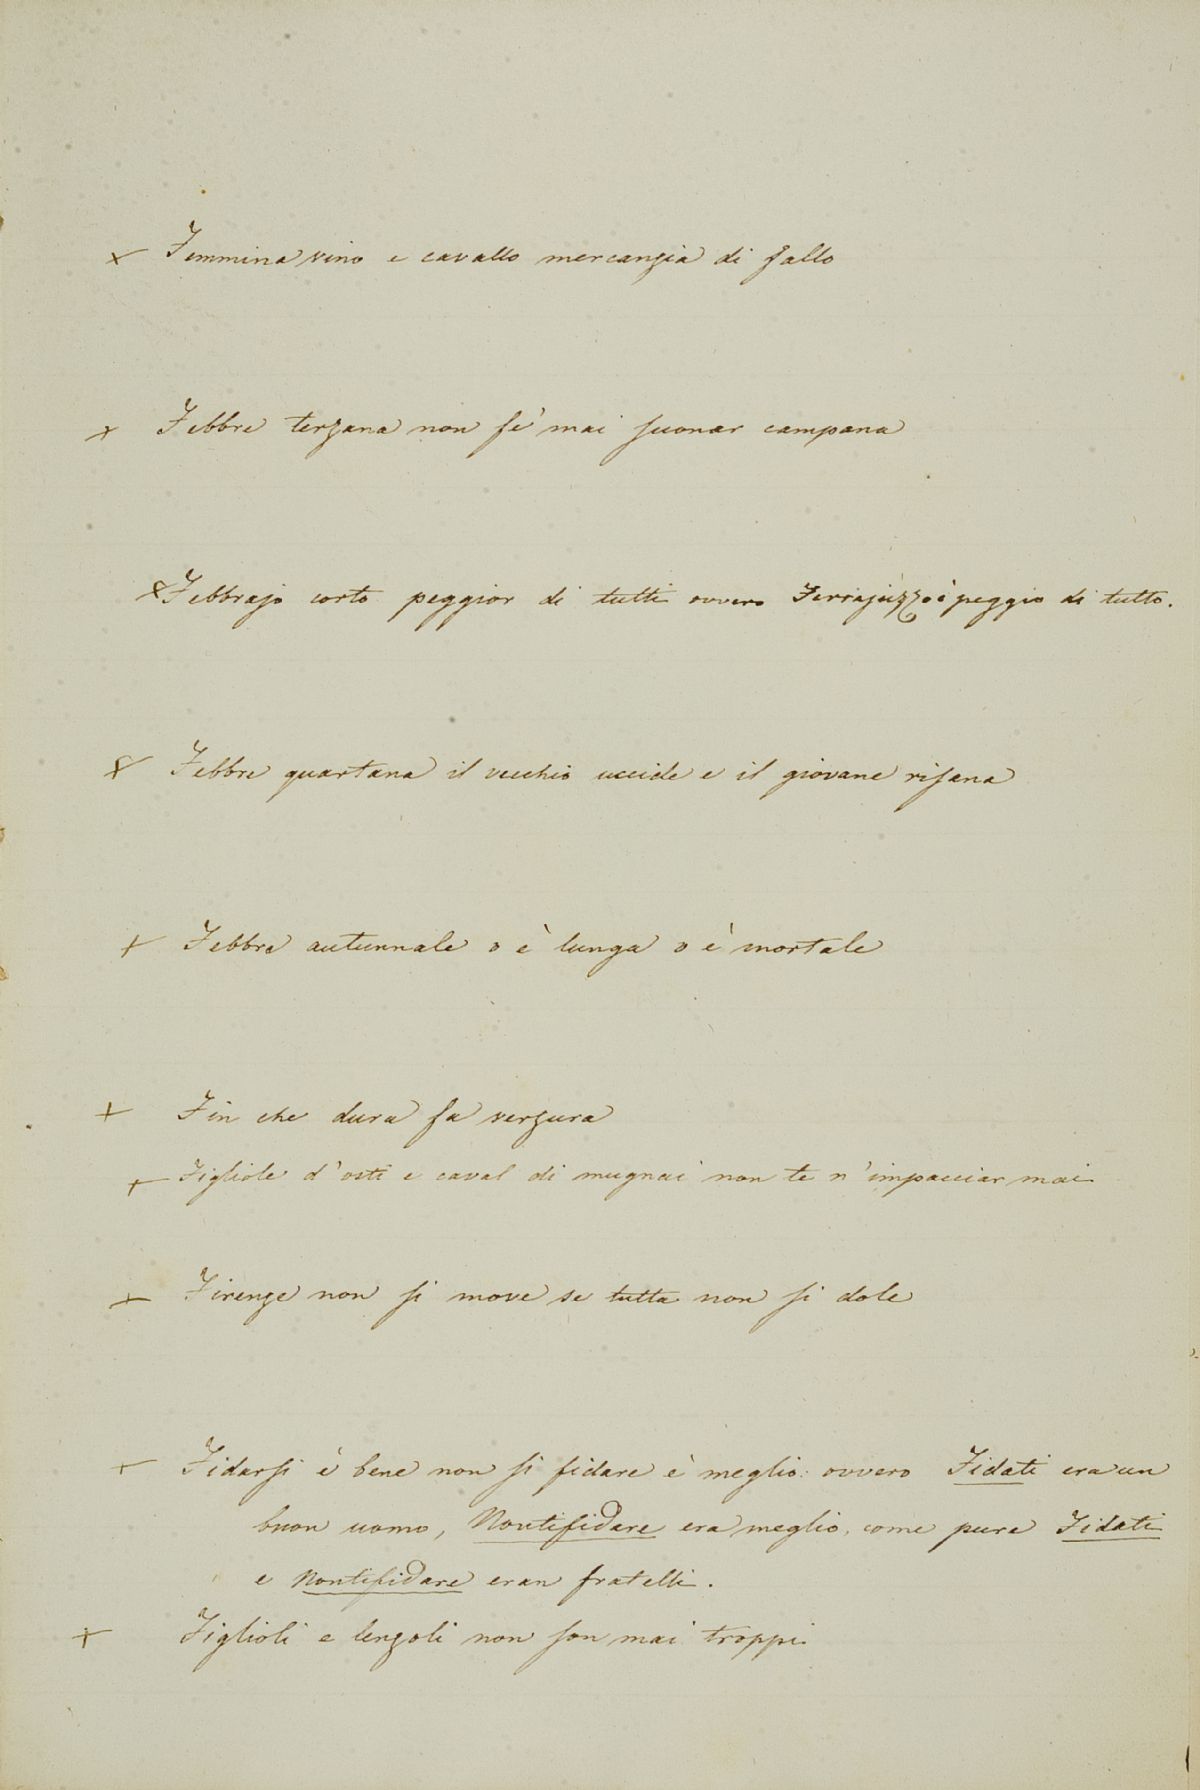 x Femmina vino e cavallo mercanzia di fallo
x Febbre terzana non fe' mai suonar campana
x Febbrajo corto peggior di tutti ovvero Ferrajuzzo è peggio di tutto.
x Febbre quartana il vecchio uccide e il giovane risana
+ Febbre autunnale o è lunga o è mortale
+ Fin che dura fa verzura
+ Figliole d'osti e caval di mugnai non te n'impacciar mai
+ Firenze non si move se tutta non si dole
+ Fidarsi è bene non si fidare è meglio: ovvero Fidati era un
buon uomo, Nontifidare era meglio, come pure Fidati
e Nontifidare eran fratelli.
+ Figlioli e lenzoli non son mai troppi